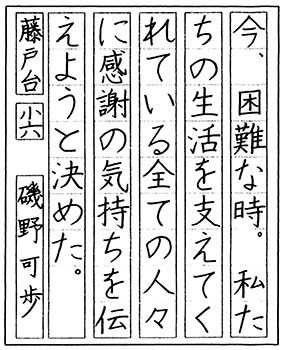 今、困難な時。私た
ちの生活を支えてく
れている全ての人々
に感謝の気持ちを伝
えようと決めた。
藤戸台 小六 磯野可歩